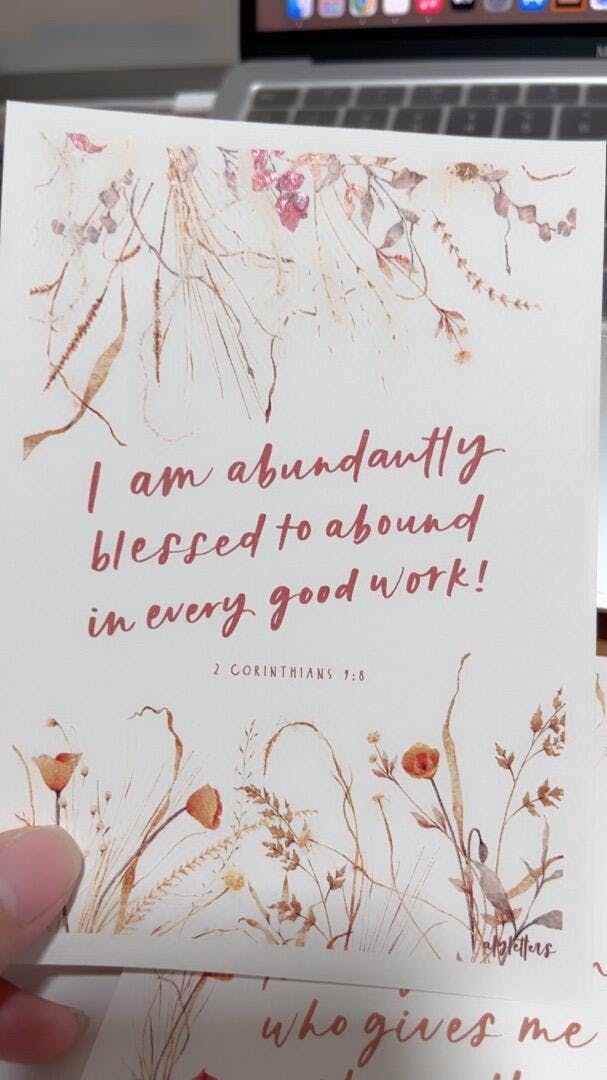 I am abundantly
blessed to abound
in every good work!
2 CORINTHIANS 9:8
albyletters
who gives me